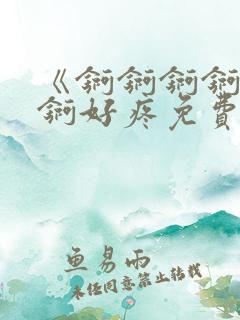 《锕锕锕锕
锕好疼免费
鱼易雨
未经同意禁止转载